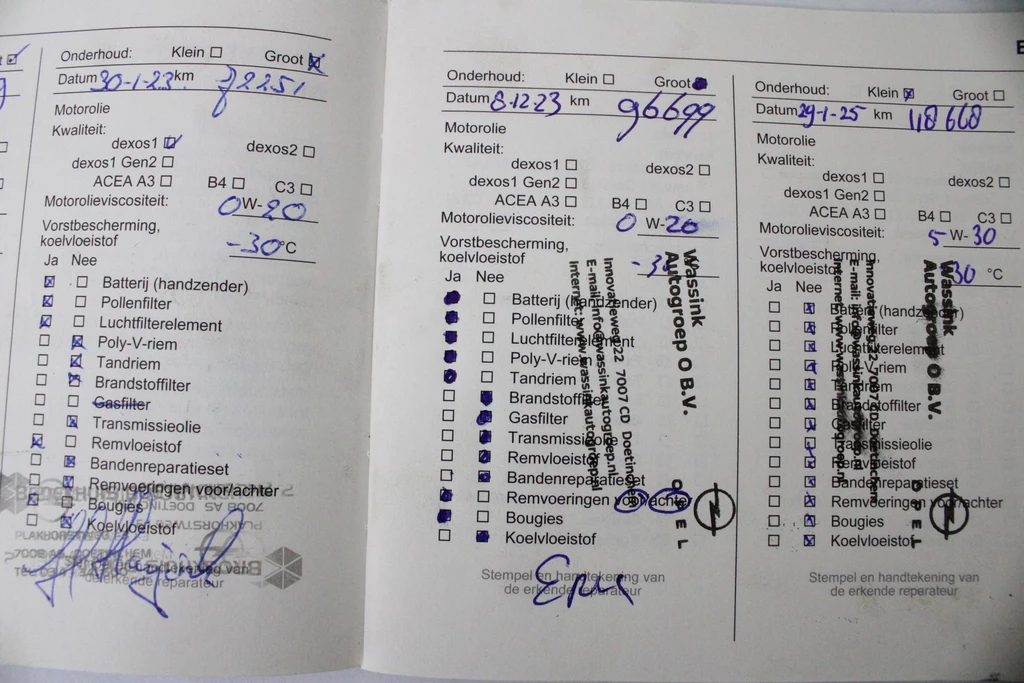 Onderhoud: Klein Groot
Datum 30-1-23 km 72251
Motorolie
Kwaliteit:
dexos1 dexos2
dexos1 Gen2
ACEA A3 B4 C3
Motorolieviscositeit: 0 W-20
Vorstbescherming,
koelvloeistof -30 °C
Ja Nee
Batterij (handzender)
Pollenfilter
Luchtfilterelement
Poly-V-riem
Tandriem
Brandstoffilter
Gasfilter
Transmissieolie
Remvloeistof
Bandenreparatieset
Remvoeringen voor/achter
Bougies
Koelvloeistof
de erkende reparateur
Onderhoud: Klein Groot
Datum 8-12-23 km 96699
Motorolie
Kwaliteit:
dexos1 dexos2
dexos1 Gen2
ACEA A3 B4 C3
Motorolieviscositeit: 0 W-20
Vorstbescherming,
koelvloeistof
Ja Nee
Batterij (handzender)
Pollenfilter
Luchtfilterelement
Poly-V-riem
Tandriem
Brandstoffilter
Gasfilter
Transmissieolie
Remvloeistof
Bandenreparatieset
Remvoeringen voor/achter
Bougies
Koelvloeistof
Wassink
Autogroep O B.V.
Innovatieweg 22 7007 CD Doetinchem
E-mail: info@wassinkautogroep.nl
Internet: www.wassinkautogroep.nl
OPEL
Stempel en handtekening van
de erkende reparateur
Onderhoud: Klein Groot
Datum 29-1-25 km 118668
Motorolie
Kwaliteit:
dexos1 dexos2
dexos1 Gen2
ACEA A3 B4 C3
Motorolieviscositeit: 5 W-30
Vorstbescherming,
koelvloeistof 30 °C
Ja Nee
Batterij (handzender)
Pollenfilter
Luchtfilterelement
Poly-V-riem
Tandriem
Brandstoffilter
Gasfilter
Transmissieolie
Remvloeistof
Bandenreparatieset
Remvoeringen voor/achter
Bougies
Koelvloeistof
Wassink
Autogroep O B.V.
Innovatieweg 22 7007 CD Doetinchem
E-mail: info@wassinkautogroep.nl
Internet: www.wassinkautogroep.nl
OPEL
Stempel en handtekening van
de erkende reparateur